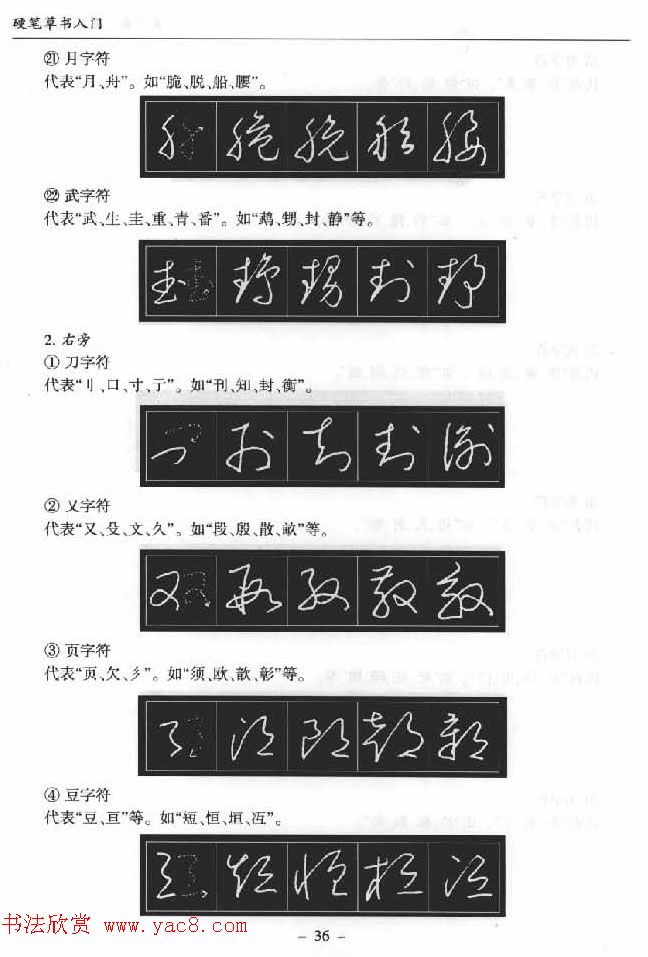 硬笔草书入门
㉑ 月字符
代表“月、舟”。如“脆、脱、船、腰”。
㉒ 武字符
代表“武、生、圭、重、青、番”。如“鹉、甥、封、静”等。
2. 右旁
① 刀字符
代表“刂、口、寸、亍”。如“刊、知、封、衡”。
② 又字符
代表“又、殳、文、久”。如“段、殷、散、畝”等。
③ 页字符
代表“页、欠、彡”。如“须、欧、歆、彰”等。
④ 豆字符
代表“豆、亘”等。如“短、恒、垣、冱”。
书法欣赏 www.yac8.com
- 36 -